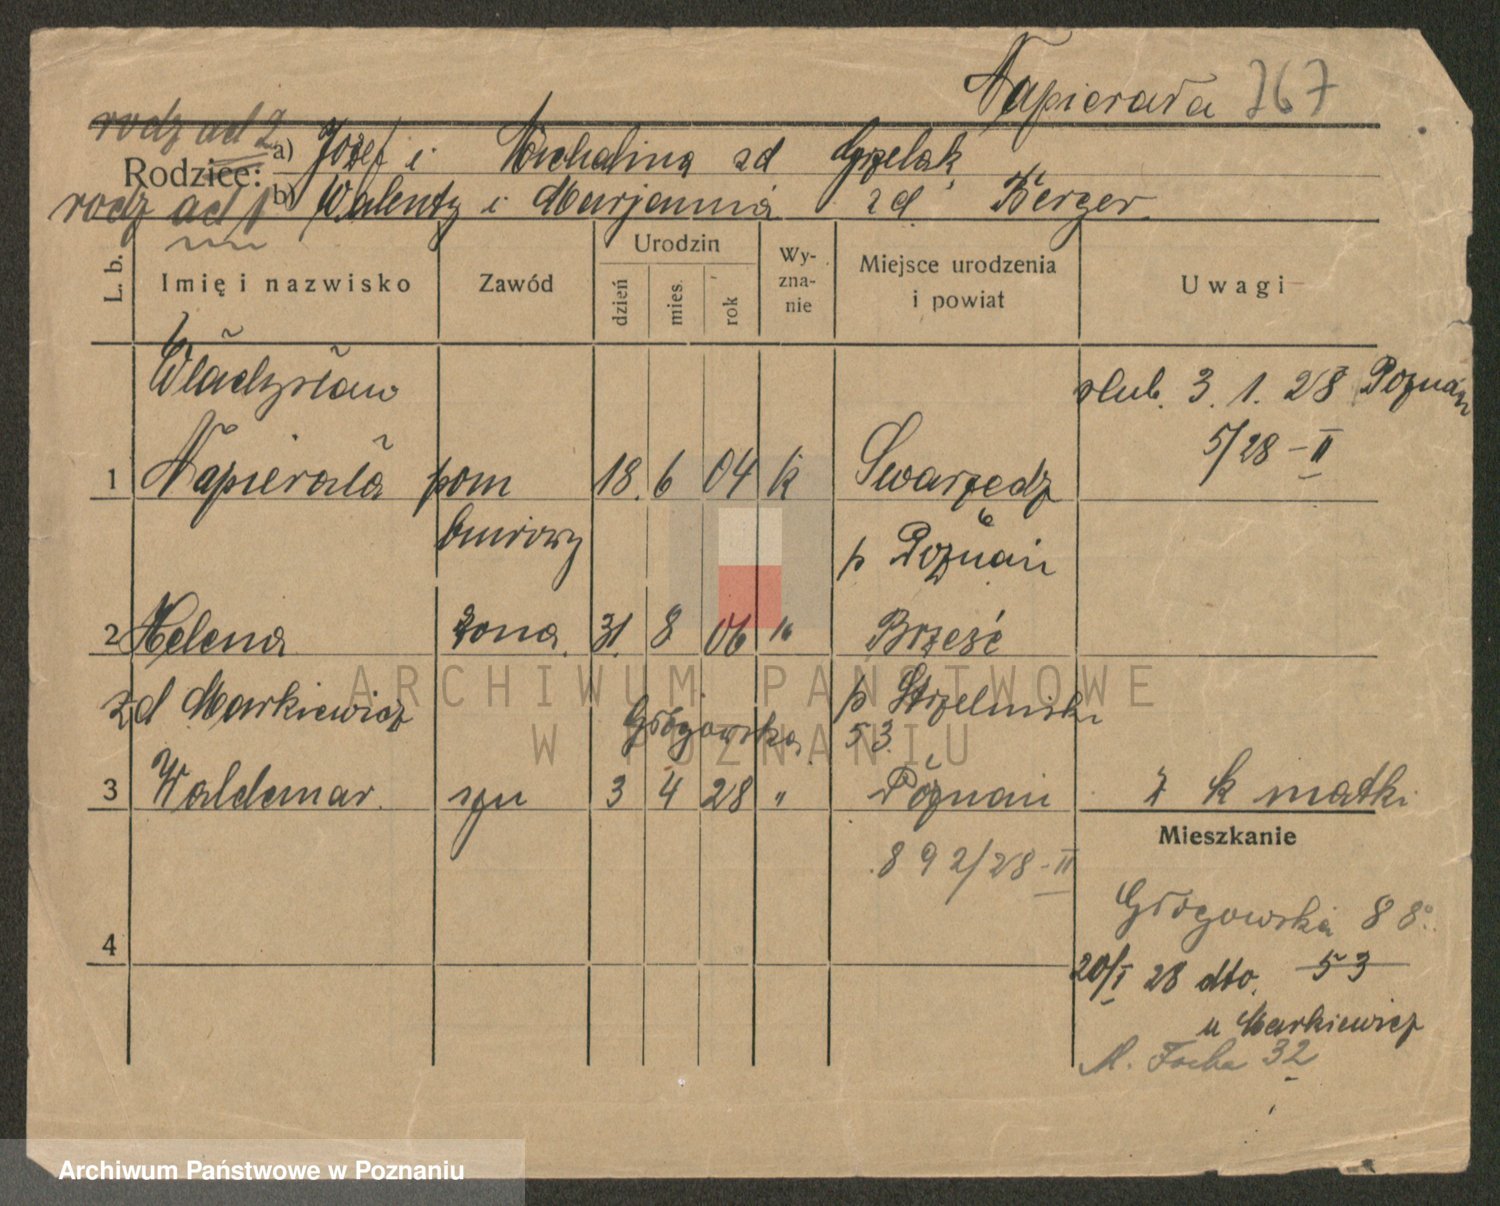 Napierała 767
rodz ad 2
Rodzice: a) Józef i Michalina zd Grzelak
rodz ad 1 b) Walenty i Marjanna zd Berger
L. b. Imię i nazwisko Zawód Urodzin Wyznanie Miejsce urodzenia i powiat Uwagi
dzień mies. rok
Władysław ślub. 3. 1. 28 Poznań
5/28 - II
1 Napierała pom 18. 6 04 k Swarzędz
biurowy p Poznań
2 Helena żona 31. 8 06 " Brześć
zd Markiewicz p Strzeliński
Głogowska 53
3 Waldemar syn 3 4 28 " Poznań z k matki
Mieszkanie
892/28 - II
Głogowska 88
4
20/I 28 dto. 53
u Markiewicz
M. Focha 32
ARCHIWUM PAŃSTWOWE
W POZNANIU
Archiwum Państwowe w Poznaniu